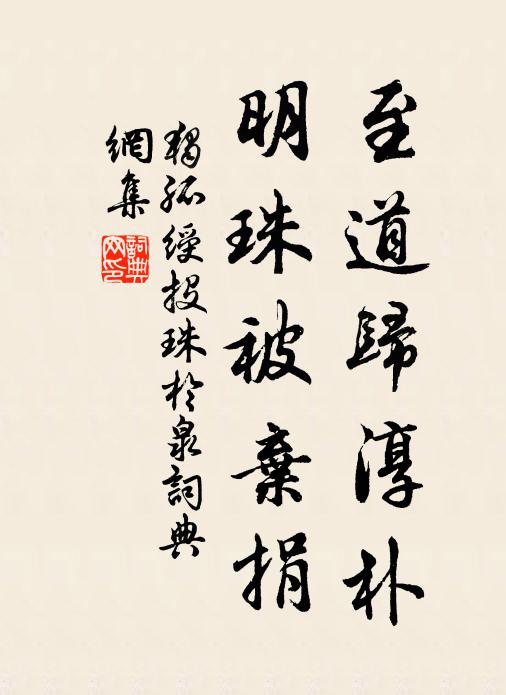 至道歸淳朴
明珠被棄捐
獨孤綬投珠於泉詞典
網集
詞典
網印